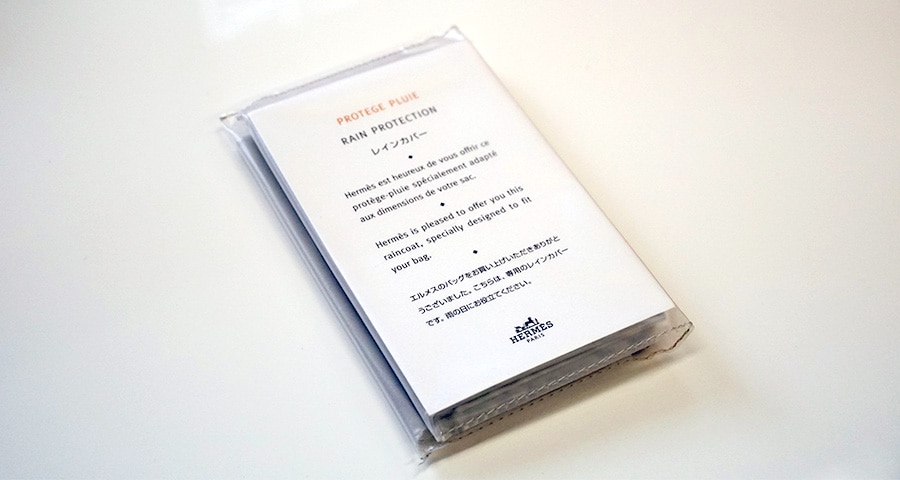 PROTEGE PLUIE
RAIN PROTECTION
レインカバー
Hermès est heureux de vous offrir ce
protège-pluie spécialement adapté
aux dimensions de votre sac.
Hermès is pleased to offer you this
raincoat, specially designed to fit
your bag.
エルメスのバッグをお買い上げいただきありがと
うございました。こちらは、専用のレインカバー
です。雨の日にお役立てください。
HERMÈS
PARIS